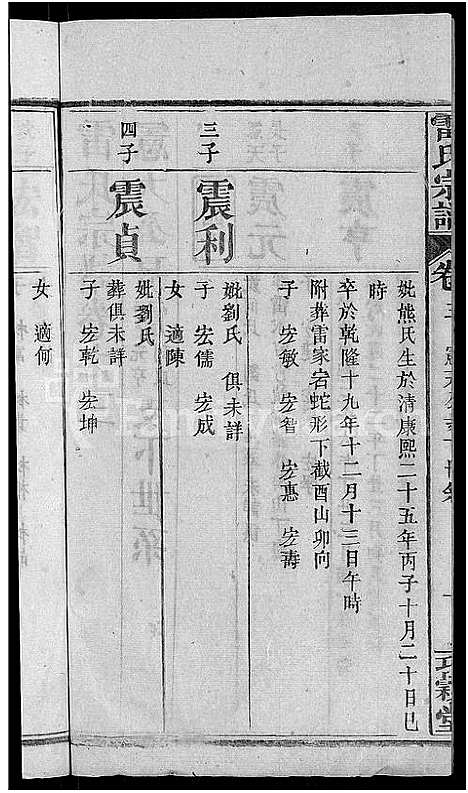 雷氏宗譜
卷
妣熊氏生於清康熙二十五年丙子十月二十日巳
時
卒於乾隆十九年十二月十三日午時
附葬雷家岩蛇形下截酉山卯向
子 宏敏 宏智 宏惠 宏壽
三子
震利
妣劉氏 俱未詳
子 宏儒 宏成
女 適陳
四子
震貞
妣劉氏
葬俱未詳
子 宏乾 宏坤
女 適何